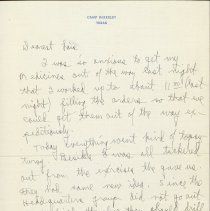 CAMP BARKELEY
TEXAS
Dearest Fair,
I was so anxious to get my
medicines out of the way last night
that I worked up to about 11 PM (last
night) filling the orders so that we
could get them out of the way ex-
peditiously.
Today everything went kind of topsy
turvy. Besides I was all tuckered
out from the exercises they gave us.
They had some new idea. Since the
Headquarters group did not go out